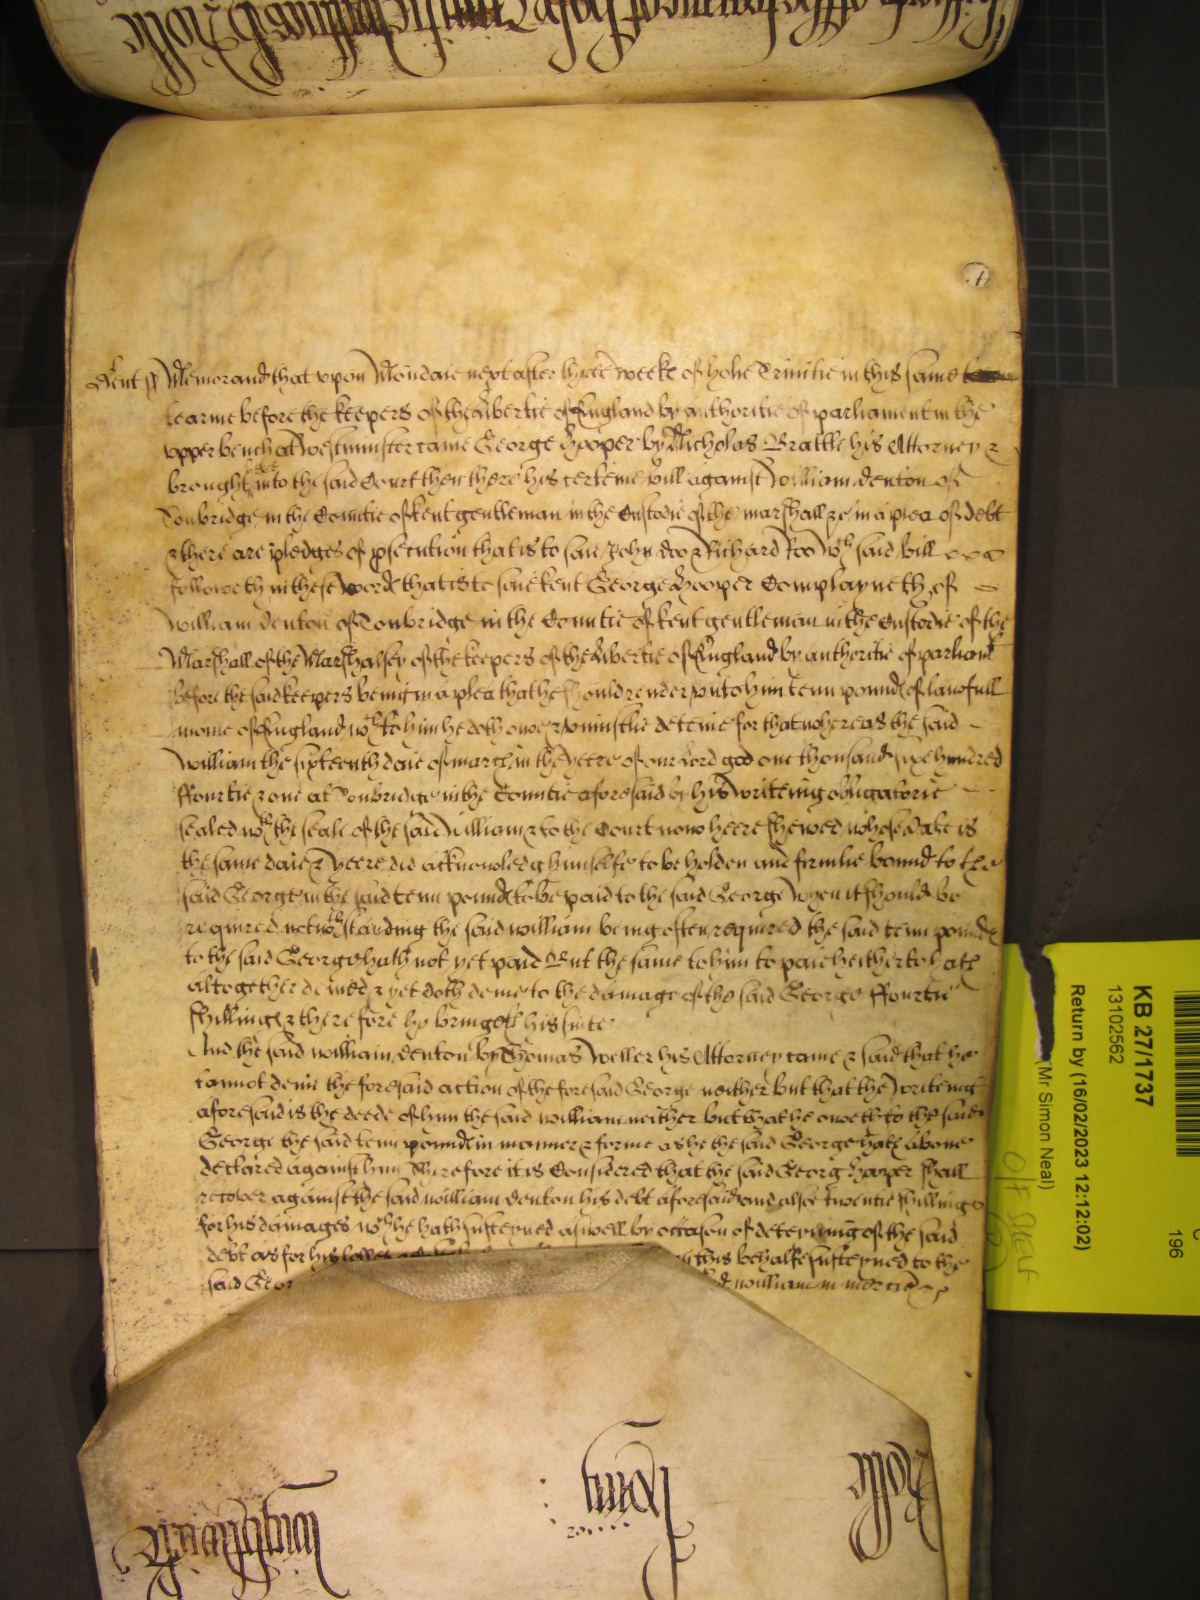 Kent ss Memorand that upon Mondaie next after three weeke of holie Trinitie in this same
tearme before the keepers of the libertie of England by authoritie of parliament in the
upper bench at Westminster came George Hooper by Nicholas Brattle his Attorney &
brought here into the said Court then there his certeine bill against William Denton of
Tonbridge in the Countie of Kent gentleman in the Custodie of the marshall &c in a plea of debt
& there are pledges of psecution that is to saie John Doo & Richard Roo wch said bill
followeth in these word that is to saie Kent George Hooper Complayneth of
William Denton of Tonbridge in the Countie of Kent gentleman in the Custodie of the
Marshall of the Marshalsey of the keepers of the libertie of England by authoritie of parliamt
before the said keepers being in a plea that he should render unto him tenn pound of lawfull
monie of England wch to him he doth owe & uniustlie deteine for that whereas the said
William the sixteenth daie of march in the yeere of our Lord god one thousand sixe hundred
ffourtie & one at Tonbridge in the Countie aforesaid by his writeing obligatorie
sealed wth the seale of the said William & to the Court now heere shewed whose date is
the same daie & yeere did acknowledg himselfe to be holden and firmlie bound to the
said George in the said tenn pound to be paid to the said George when it should be
required notwthstanding the said William being often required the said tenn pound
to the said George hath not yet paid But the same to him to paie heitherto hath
altogether denied & yet doth denie to the damage of the said George ffourtie
shilling & therefore he bringeth his suite
And the said William Denton by Thomas Weller his Attorney came & said that he
cannot denie the foresaid action of the foresaid George neither but that the writeing
aforesaid is the deede of him the said William neither but that he oweth to the said
George the said tenn pound in manner & forme as he the said George hath above
declared against him Therefore it is Considered that the said Georg Hooper shall
recover against the said William Denton his debt aforesaid and alsoe twentie shillings
for his damages wch he hath susteyned aswell by occasion of deteyning of the said
debt as for his this behalfe susteyned to the
said Geor William in mercie &c
Rolle
KB 27/1737
13102562
Return by (16/02/2023 12:12:02)
(Mr Simon Neal)
196
O/F SHELF